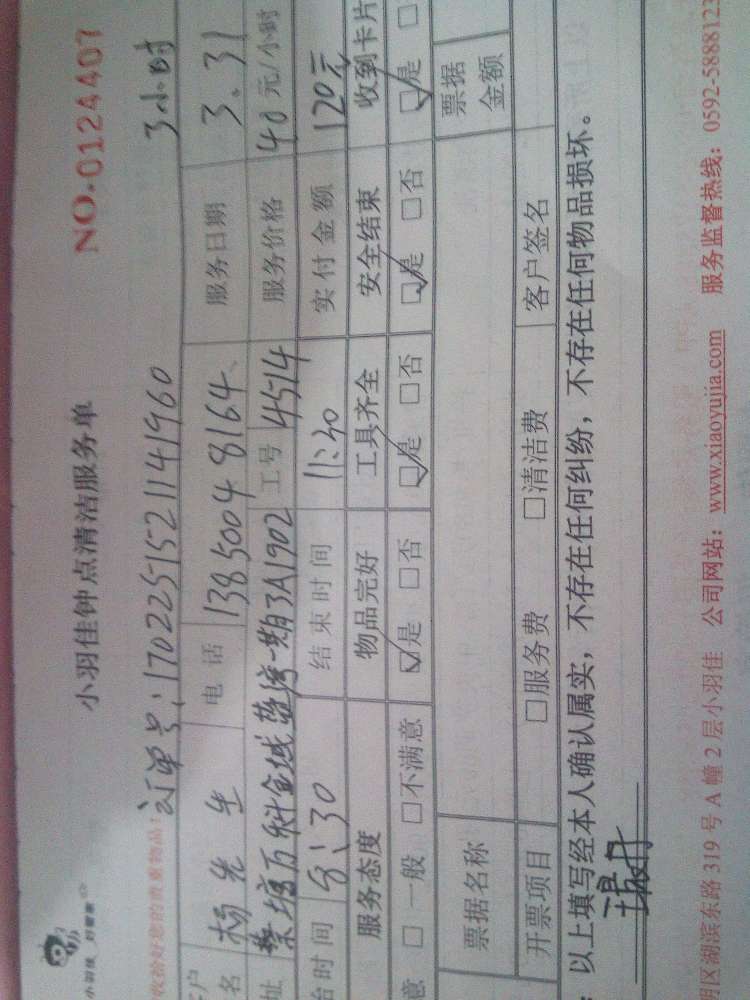 小羽佳 好管家
小羽佳钟点清洁服务单 NO.0124407
收拾好您的贵重物品!
订单号:170225152114196 0 3小时
户名 杨先生 电话 13850048164 服务日期 3.31
址 万科金域 一期3A1902 工号 4514 服务价格 40元/小时
始时间 8:30 结束时间 11:30 实付金额 120元
服务态度 物品完好 工具齐全 安全结束 收到卡片
意 □一般 □不满意 ☑是 □否 ☑是 □否 ☑是 □否 ☑是 □
票据名称 票据金额
开票项目 □服务费 □清洁费 客户签名
:以上填写经本人确认属实,不存在任何纠纷,不存在任何物品损坏。
明区湖滨东路 319 号 A 幢 2 层小羽佳 公司网站:www.xiaoyujia.com 服务监督热线:0592-5888123